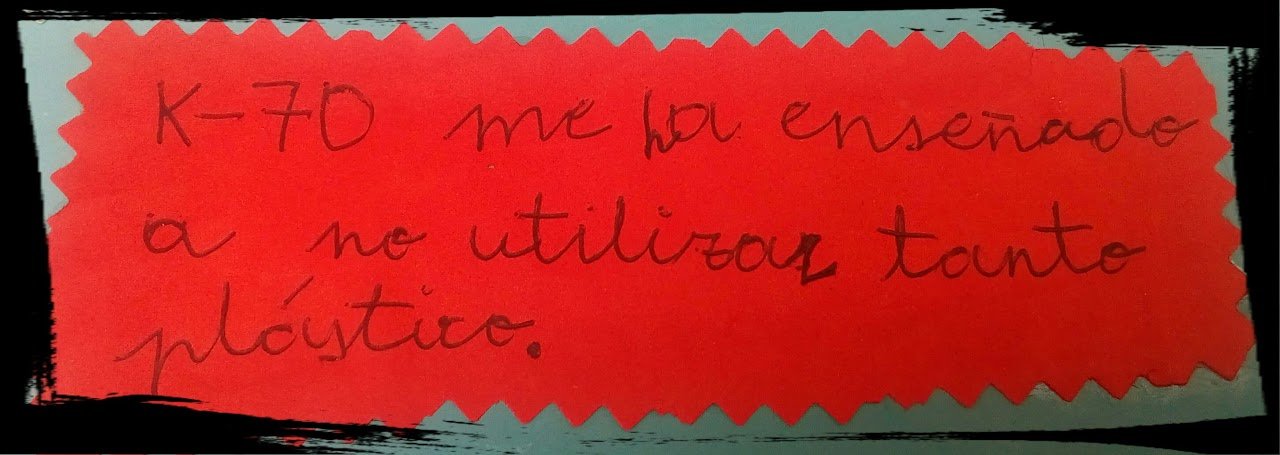 K-70 me ha enseñado
a no utilizar tanto
plástico.